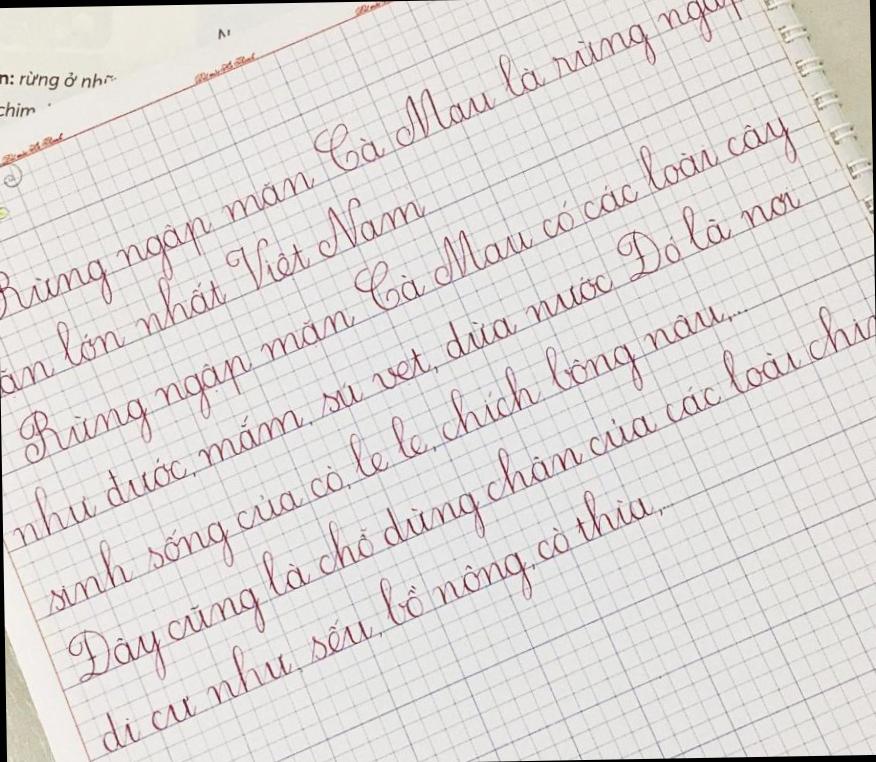 n: rừng ở nhữ
chim
Rừng ngập mặn Cà Mau là rừng ngập
ặn lớn nhất Việt Nam
Rừng ngập mặn Cà Mau có các loài cây
như đước, mắm, sú vẹt, dừa nước Đó là nơi
sinh sống của cò, le le, chích bông nâu,...
Đây cũng là chỗ dừng chân của các loài chim
di cư như, sếu, bồ nông, cò thìa,...